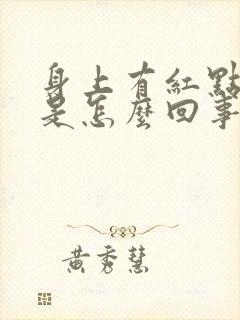 身上有紅點
是怎麼回事
黃秀慧